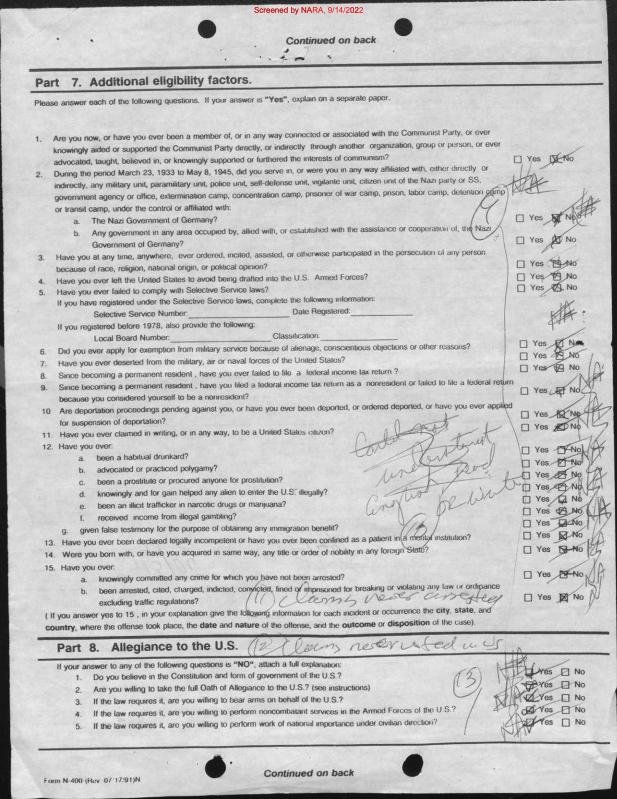 Screened by NARA, 9/14/2022
Continued on back
Part 7. Additional eligibility factors.
Please answer each of the following questions. If your answer is "Yes", explain on a separate paper.
1. Are you now, or have you ever been a member of, or in any way connected or associated with the Communist Party, or ever
knowingly aided or supported the Communist Party directly, or indirectly through another organization, group or person, or ever
advocated, taught, believed in, or knowingly supported or furthered the interests of communism? Yes No
2. During the period March 23, 1933 to May 8, 1945, did you serve in, or were you in any way affiliated with, either directly or
indirectly, any military unit, paramilitary unit, police unit, self-defense unit, vigilante unit, citizen unit of the Nazi party or SS,
government agency or office, extermination camp, concentration camp, prisoner of war camp, prison, labor camp, detention camp
or transit camp, under the control or affiliated with:
a. The Nazi Government of Germany? Yes No
b. Any government in any area occupied by, allied with, or established with the assistance or cooperation of, the Nazi
Government of Germany? Yes No
3. Have you at any time, anywhere, ever ordered, incited, assisted, or otherwise participated in the persecution of any person
because of race, religion, national origin, or political opinion? Yes No
4. Have you ever left the United States to avoid being drafted into the U.S. Armed Forces? Yes No
5. Have you ever failed to comply with Selective Service laws? Yes No
If you have registered under the Selective Service laws, complete the following information:
Selective Service Number: Date Registered:
NA
If you registered before 1978, also provide the following:
Local Board Number: Classification:
6. Did you ever apply for exemption from military service because of alienage, conscientious objections or other reasons? Yes No
7. Have you ever deserted from the military, air or naval forces of the United States? Yes No
8. Since becoming a permanent resident , have you ever failed to file a federal income tax return ? Yes No
9. Since becoming a permanent resident , have you filed a federal income tax return as a nonresident or failed to file a federal return
because you considered yourself to be a nonresident? Yes No
10 Are deportation proceedings pending against you, or have you ever been deported, or ordered deported, or have you ever applied
for suspension of deportation? Yes No
11. Have you ever claimed in writing, or in any way, to be a United States citizen? Yes No
12. Have you ever:
a. been a habitual drunkard? Yes No
b. advocated or practiced polygamy? Yes No
c. been a prostitute or procured anyone for prostitution? Yes No
d. knowingly and for gain helped any alien to enter the U.S. illegally? Yes No
e. been an illicit trafficker in narcotic drugs or marijuana? Yes No
f. received income from illegal gambling? Yes No
g. given false testimony for the purpose of obtaining any immigration benefit? Yes No
Could not
understand
English read
or write
13. Have you ever been declared legally incompetent or have you ever been confined as a patient in a mental institution? Yes No
14. Were you born with, or have you acquired in same way, any title or order of nobility in any foreign State? Yes No
15. Have you ever:
a. knowingly committed any crime for which you have not been arrested? Yes No
b. been arrested, cited, charged, indicted, convicted, fined or imprisoned for breaking or violating any law or ordinance
excluding traffic regulations? Yes No
(11) Claims never arrested
( If you answer yes to 15 , in your explanation give the following information for each incident or occurrence the city, state, and
country, where the offense took place, the date and nature of the offense, and the outcome or disposition of the case).
Part 8. Allegiance to the U.S. (12) Claims never voted in US
If your answer to any of the following questions is "NO", attach a full explanation:
(13)
1. Do you believe in the Constitution and form of government of the U.S.? Yes No
2. Are you willing to take the full Oath of Allegiance to the U.S.? (see instructions) Yes No
3. If the law requires it, are you willing to bear arms on behalf of the U.S.? Yes No
4. If the law requires it, are you willing to perform noncombatant services in the Armed Forces of the U.S.? Yes No
5. If the law requires it, are you willing to perform work of national importance under civilian direction? Yes No
Continued on back
Form N-400 (Rev 07/17/91)N